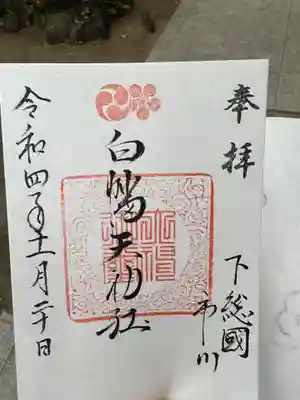 奉拝
下総國
市川
白幡天神社
令和四年十一月二十日